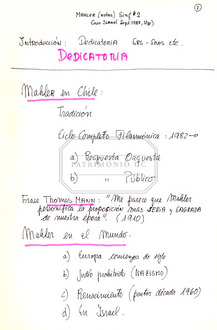 MAHLER (notas) Sinf #2
Introducción: Dedicatoria etc.
DEDICATORIA
Mahler en Chile:
Tradición
Ciclo Completo Filarmónica: 1982-
a) Respuesta Orquesta
b) " Público
PATRIMONIO UC
Frase Thomas MANN: "Me parece que Mahler
personifica la proposición más SERIA y SAGRADA
de nuestra época". (1910)
Mahler en el Mundo:
a) Europa comienzos de siglo
b) Judío prohibido (NAZISMO)
c) Renacimiento (década 1960)
d) En Israel.